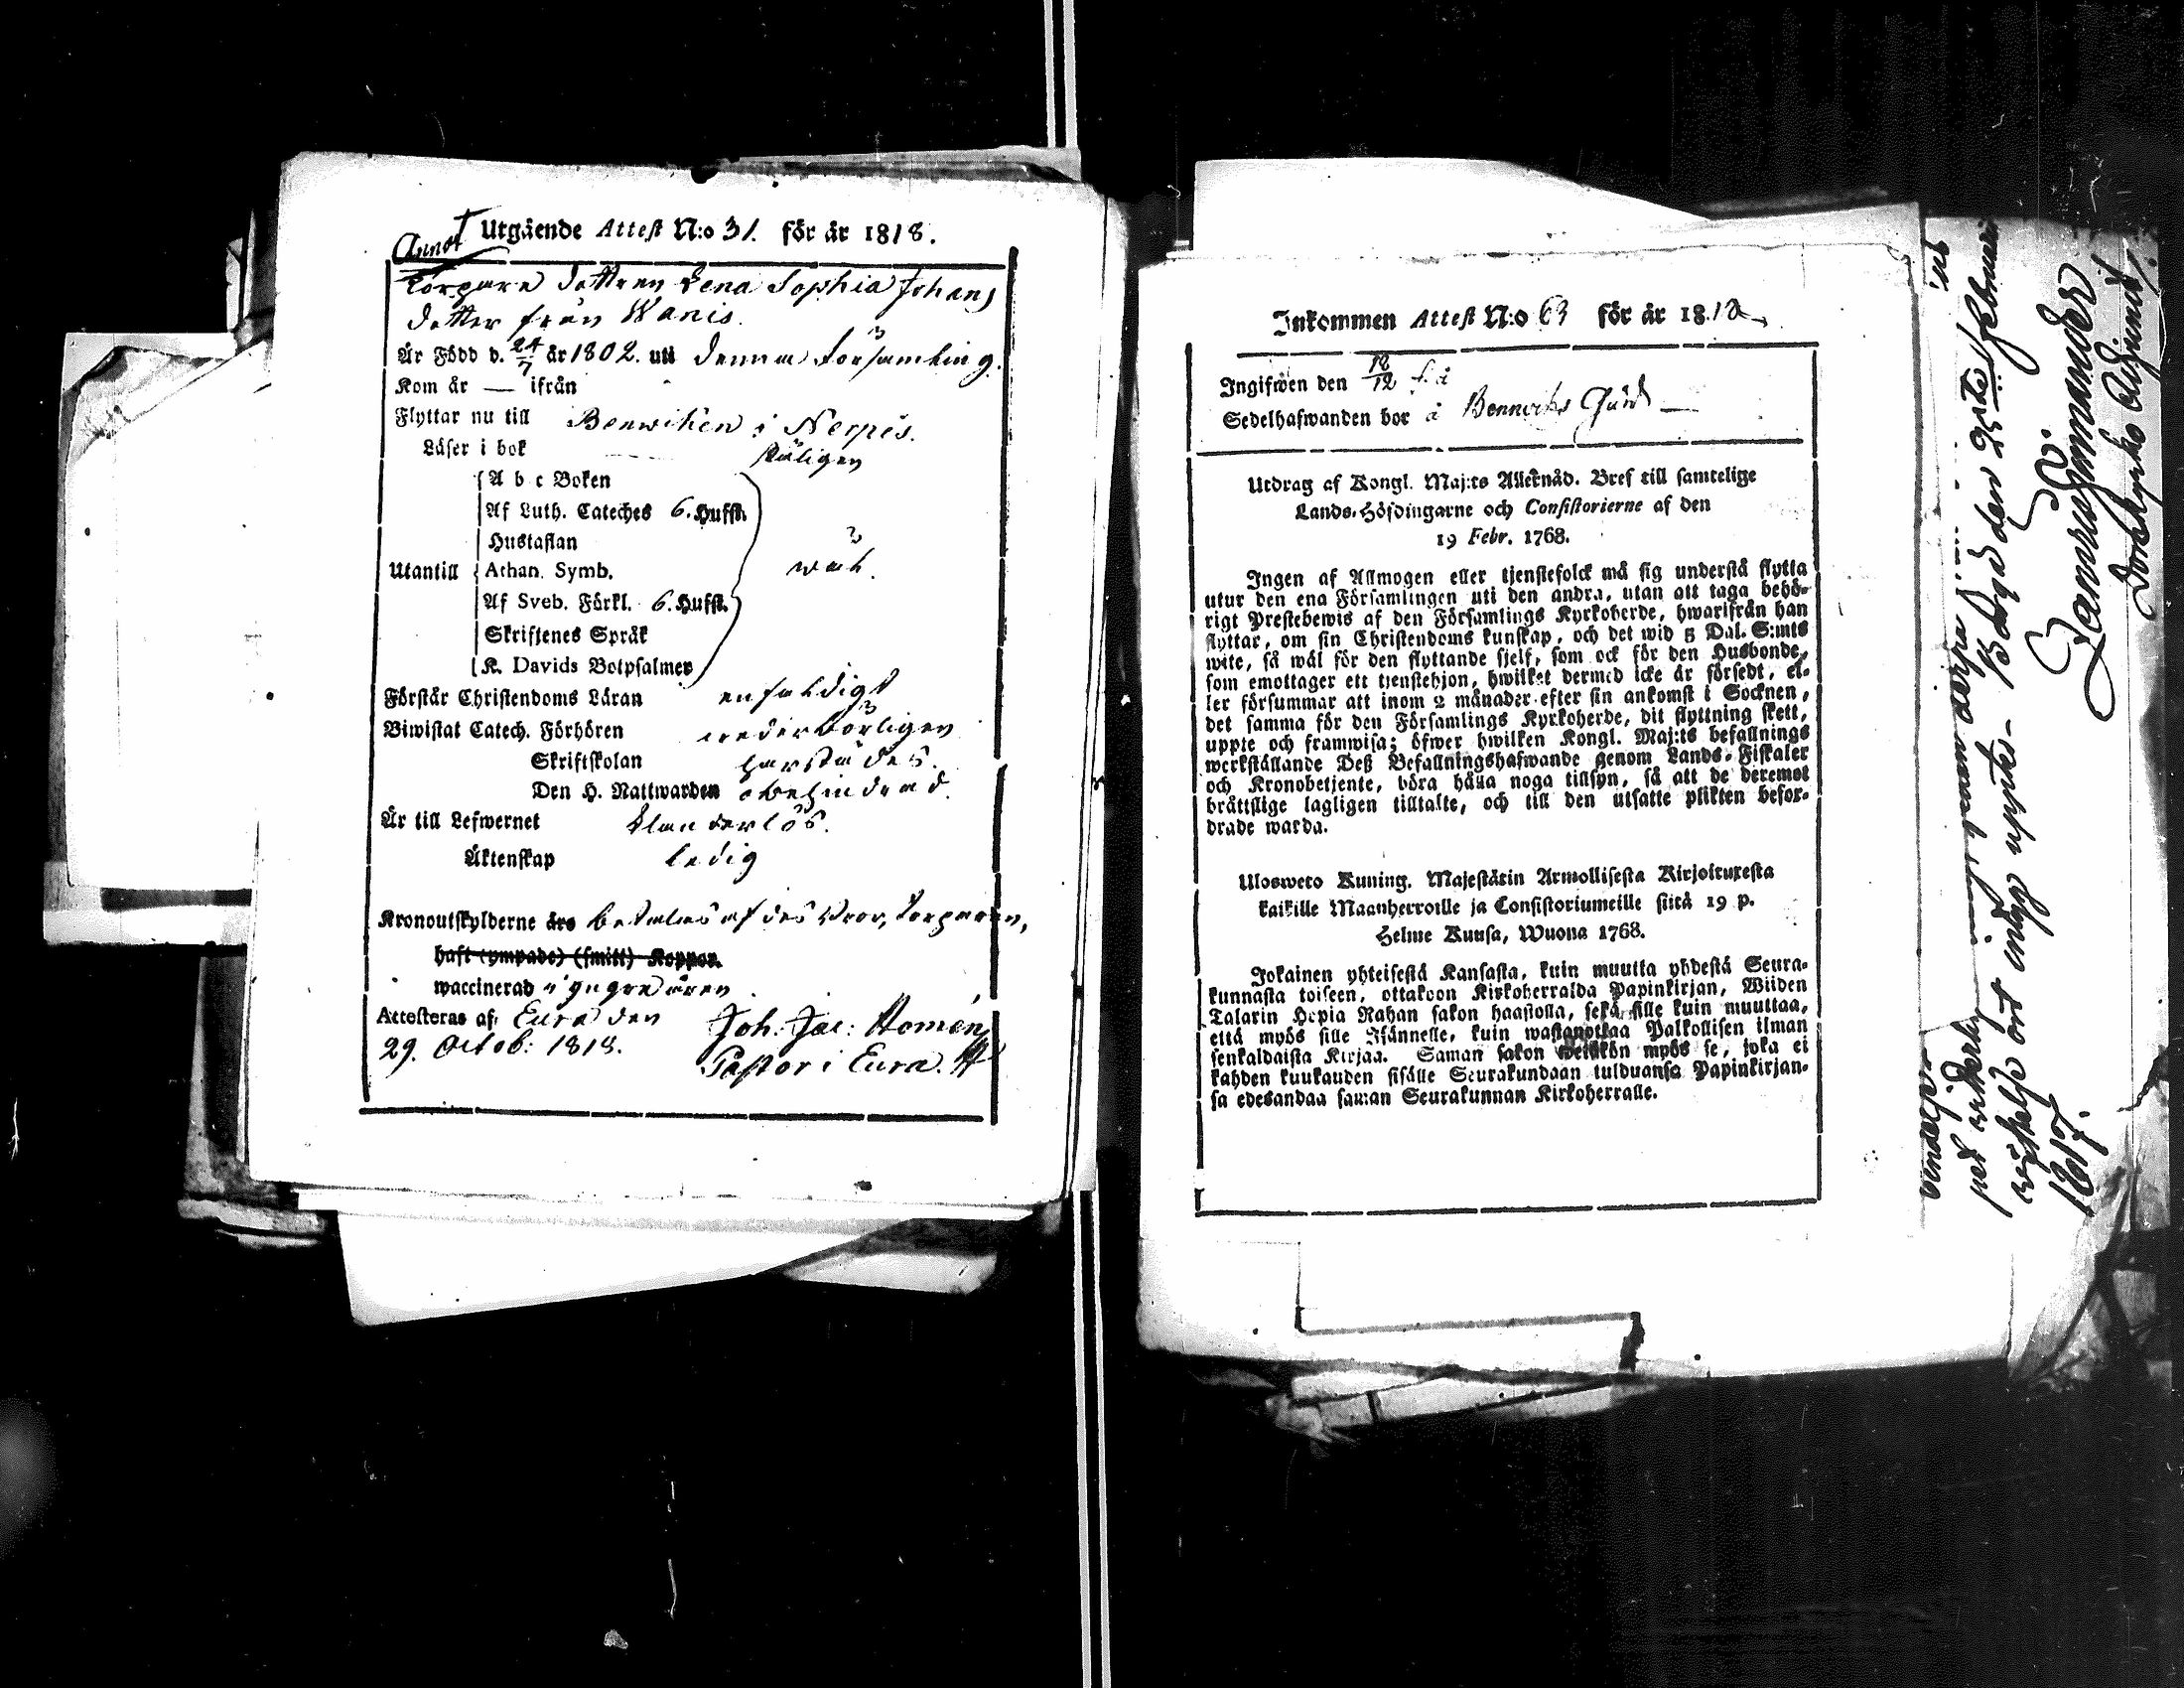 Annot
Utgående Attest N:o 31. för år 1818.
Torpare dottren Lena Sophia Johans
dotter från Wanis.
Är Född d. 24/7 år 1802. uti denna församling.
Kom år — ifrån
Flyttar nu till Benwiken i Nerpis.
Läser i bok
A b c Boken
Af Luth. Cateches 6. Hufst.
Hustaflan
Utantill Athan. Symb. wäl.
Af Sveb. Förkl. 6. Hufst.
Skriftenes Språk
K. Davids Botpsalmer
Förstår Christendoms Läran enfaldigt
Biwistat Catech. Förhören wederbörligen
Skriftskolan härstädes.
Den H. Nattwarden obehindrad.
Är till Lefwernet klanderlös.
Äktenskap ledig
Kronoutskylderne års betalas af des Torparen,
haft (ympade) (smitt) Koppor.
waccinerad i yngre åren
Attesteras af Eura den Joh. Jac: Homén
29. Octob: 1818. Pastor i Eura.
Inkommen Attest N:o 63 för år 1818
Ingifwen den 18/12
Sedelhafwanden bor å Benwiks Gård —
Utdrag af Kongl. Maj:ts Allernåd. Bref till samtelige
Lands-Höfdingarne och Consistorierne af den
19 Febr. 1768.
Ingen af Allmogen eller tjenstefolck må sig understå flytta
utur den ena Församlingen uti den andra, utan att taga behö-
rigt Prestebewis af den Församlings Kyrkoherde, hwarifrån han
flyttar, om sin Christendoms kunskap, och det wid 5 Dal. S:mts
wite, så wäl för den flyttande sjelf, som ock för den Husbonde,
som emottager ett tjenstehjon, hwilket dermed icke är försedt, el-
ler försummar att inom 2 månader efter sin ankomst i Socknen,
det samma för den Församlings Kyrkoherde, dit flyttning skett,
uppte och framwisa; öfwer hwilken Kongl. Maj:ts befallnings
werkställande Deß Befallningshafwande genom Lands-Fiskaler
och Kronobetjente, böra hålla noga tillsyn, så att de deremot
bråttslige lagligen tilltalte, och till den utsatte plikten befor-
drade warda.
Uloswetο Kuning. Majestätin Armollisesta Kirjoituxesta
kaikille Maanherroille ja Consistoriumeille siitä 19 p.
Helme Kuusa, Wuona 1768.
Jokainen yhteisestä Kansasta, kuin muutta yhdestä Seura-
kunnasta toiseen, ottakoon Kirkoherralda Papinkirjan, Wiiden
Talarin Hopia Rahan sakon haastolla, sekä sille kuin muuttaa,
että myös sille Isännelle, kuin wastanottaa Palkollisen ilman
senkaldaista Kirjaa. Saman sakon myös se, joka ei
kahden kuukauden sisälle Seurakundaan tulduansa Papinkirjan-
sa edesandaa saman Seurakunnan Kirkoherralle.
Borgå den 25te februari
1817.
Lenningmander
Domkyrko Adjunct.